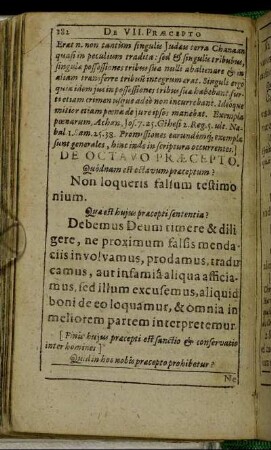 182 DE VII. PRÆCEPTO
Erat n. non tantùm singulis Judæis terra Chanaan
quasi in peculium tradita: sed & singulis tribubus,
singulæ possessiones tribus suâ nulli abalienare & in
aliam transferre tribum integrum erat. Singuli ergo
quia idem jus in possessiones tribus suæ habebant fur-
ti etiam crimen usque adeò non incurrebant. Ideoque
mitior etiam pœna de jure ipsos manebat. Exempla
pœnarum, Achan, Jos. 7. 25. 2. Reg. 5. ult. Na-
bal 1. Sam. 25. 38. Promissiones earundemq; exempla
sunt generales, hinc inde in scriptura occurrentes.
DE OCTAVO PRÆCEPTO.
Quodnam est octavum præceptum?
Non loqueris falsum testimo
nium.
Quæ est hujus præcepti sententia?
Debemus Deum timere & dili
gere, ne proximum falsis menda-
ciis involvamus, prodamus, tradu
camus, aut infamiâ aliqua afficia-
mus, sed illum excusemus, aliquid
boni de eo loquamur, & omnia in
meliorem partem interpretemur.
[Finis hujus præcepti est sanctio & conservatio
inter homines]
Quid in hoc nobis præcepto prohibetur?
Ne